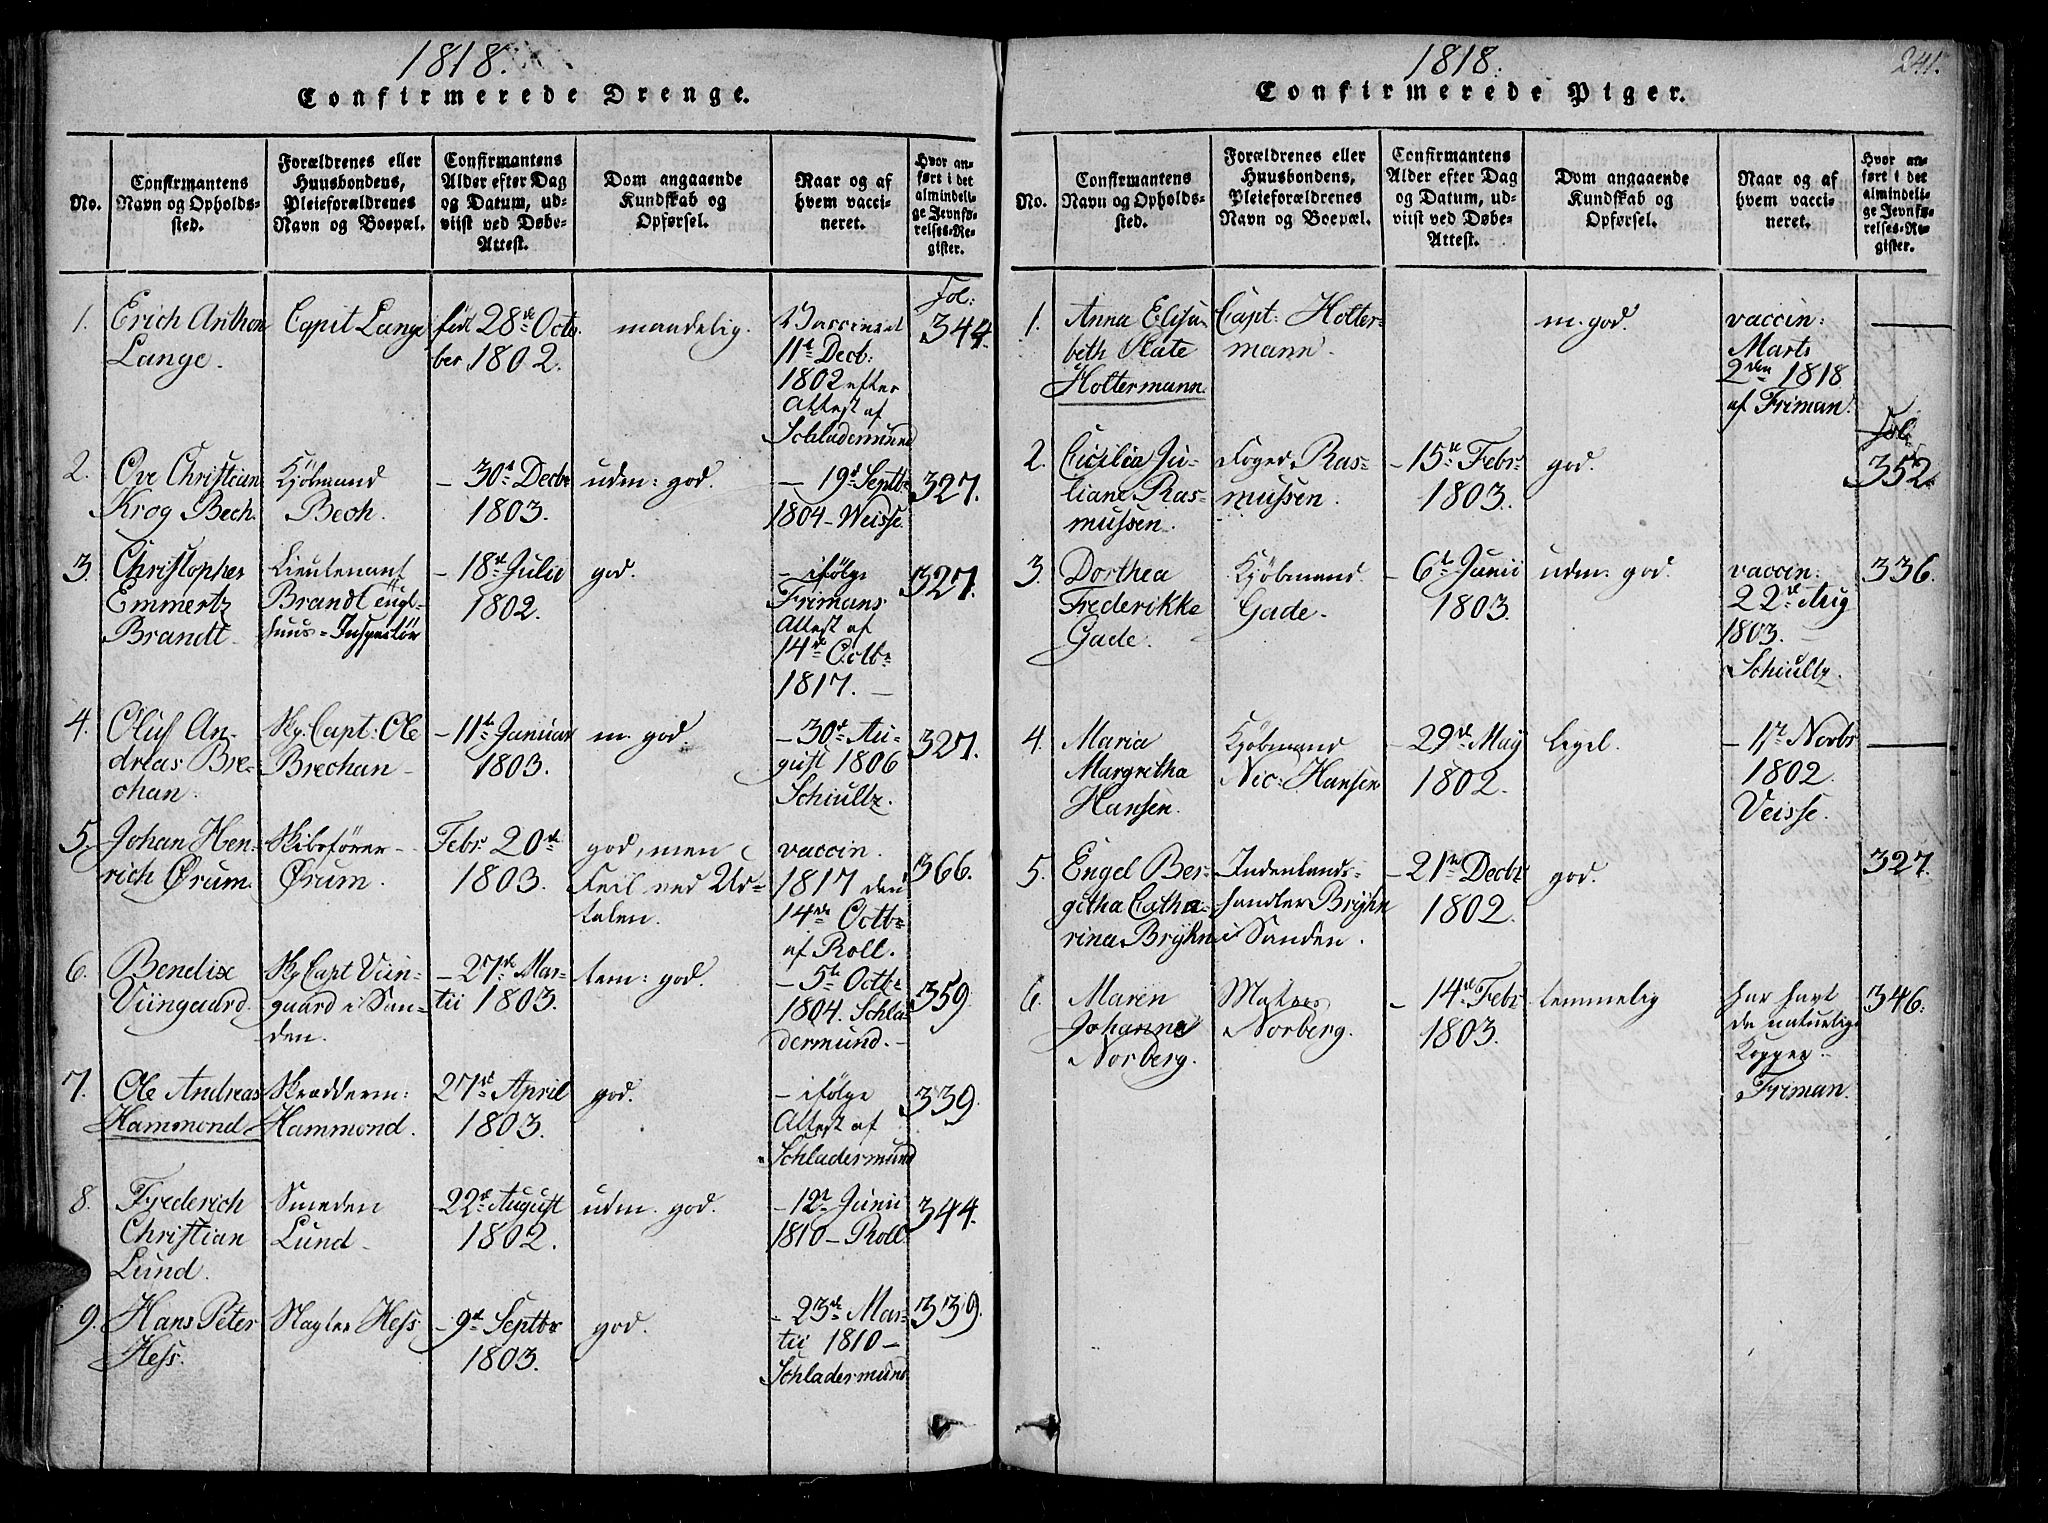 1818.
Confirmerede Drenge.
No.
Confirmantens Navn og Opholdssted.
Forældrenes eller Huusbondens, Pleieforældrenes Navn og Boepæl.
Confirmantens Alder efter Dag og Datum, udviist ved Døbe-Attest.
Dom angaaende Kundskab og Opførsel.
Naar og af hvem vaccineret.
Hvor anført i det almindelige Jevnførelses-Register.
1.
Erich Anthon
Lange.
Capit Lange
født 28de Octo
ber 1802.
maadelig.
Vaccineret
11te Decb:
1802 efter
Attest af
Schladermund
Fol:
344.
2.
Ove Christian
Krog Bech.
Kjøbmand
Bech.
- 30te Decbr
1803.
udm: god.
- 19de Septbr
1804 - Weisse
327.
3.
Christopher
Emmertz
Brandt.
Lieutenant
Brandt tugt-
huus-Inspectør
- 18de Julii
1802.
god.
- ifølge
Frimans
Attest af
14de Octbr
1817. -
327.
4.
Oluf An-
dreas Bre-
chan.
Sk. Capt: Ole
Brechan -
- 11te Januar
1803.
m. god
- 30te Au-
gust 1806
Schiultz.
327.
5.
Johan Hen-
rich Ørum.
Skibsfører -
Ørum.
Febr 20de
1803.
god, men
Feil ved Ud-
talen.
vaccin.
1817 den
14de Octbr
af Roll.
366.
6.
Bendix
Viingaard.
Sk. Capt Viin-
gaard i San-
den.
- 27de Mar-
tii 1803.
tem: god.
- 5te Octbr
1804. Schla-
dermund. -
359.
7.
Ole Andreas
Hammond.
Skrædderm:
Hammond.
27de April
1803.
god.
- ifølge
Attest af
Schladermund
339.
8.
Frederich
Christian
Lund.
Smeden
Lund -
22de August
1802.
udm. god.
- 12te Junii
1810 - Roll.
344.
9.
Hans Peter
Hess.
Slagter Hess
- 9de Septbr
1803.
god.
- 23de Mar-
tii 1810 -
Schladermund
339.
1818.
241.
Confirmerede Piger.
No.
Confirmantens Navn og Opholdssted.
Forældrenes eller Huusbondens, Pleieforældrenes Navn og Boepæl.
Confirmantens Alder efter Dag og Datum, udviist ved Døbe-Attest.
Dom angaaende Kundskab og Opførsel.
Naar og af hvem vaccineret.
Hvor anført i det almindelige Jevnførelses-Register.
1.
Anna Elisa-
beth Plate
Holtermann.
Capt: Holter-
mann.
m. god.
vaccin:
Marts
2den 1818
af Friman.
2.
Cicilia Ju-
liane Ras-
mussen.
Foged Ras-
mussen.
- 15de Febr
1803.
god.
Fol:
352.
3.
Dorthea
Frederikke
Gade.
Kjøbmand
Gade.
- 6te Junii
1803.
udm: god.
vaccin:
22de Aug
1803. -
Schiultz.
336.
4.
Maria
Margretha
Hansen.
Kjøbmand
Nic: Hansen
- 29de May
1802.
- 1te Novbr
1802.
Veisse.
5.
Engel Ber-
githa Catha-
rina Brÿhn
Indenlands-
handler Brÿhn
i Sanden.
- 21de Decbr
1802.
god.
327.
6.
Maren
Johanne
Norberg.
Matros
Norberg.
- 14de Febr
1803.
temmelig
har havt
de naturlige
Kopper.
Friman.
346.